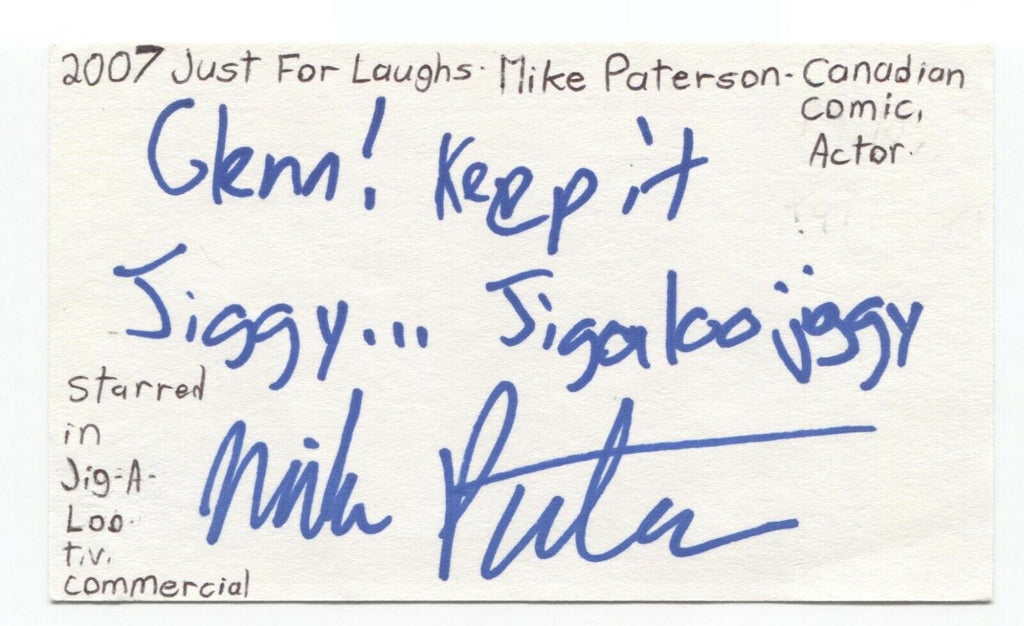 2007 Just For Laughs. Mike Paterson - Canadian
Comic,
Actor.
Glenn! Keep it
Jiggy... Jigaloo jiggy
Starred
in
Jig-A-
Loo.
t.v.
commercial
Mike Pater